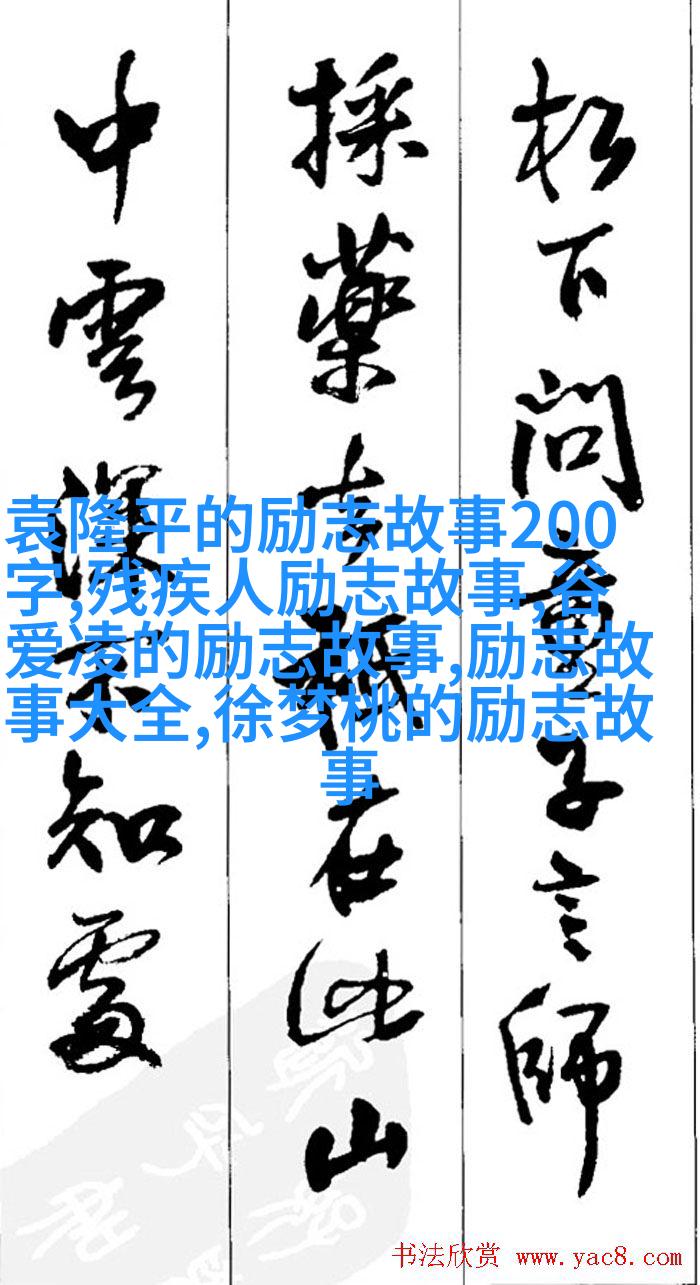 松下问童子言師
採藥去祗在此山
中雲深不知處
袁隆平的励志故事200
字,残疾人励志故事,谷
爱凌的励志故事,励志故
事大全,徐梦桃的励志故
事
书法欣赏 www.yac8.com